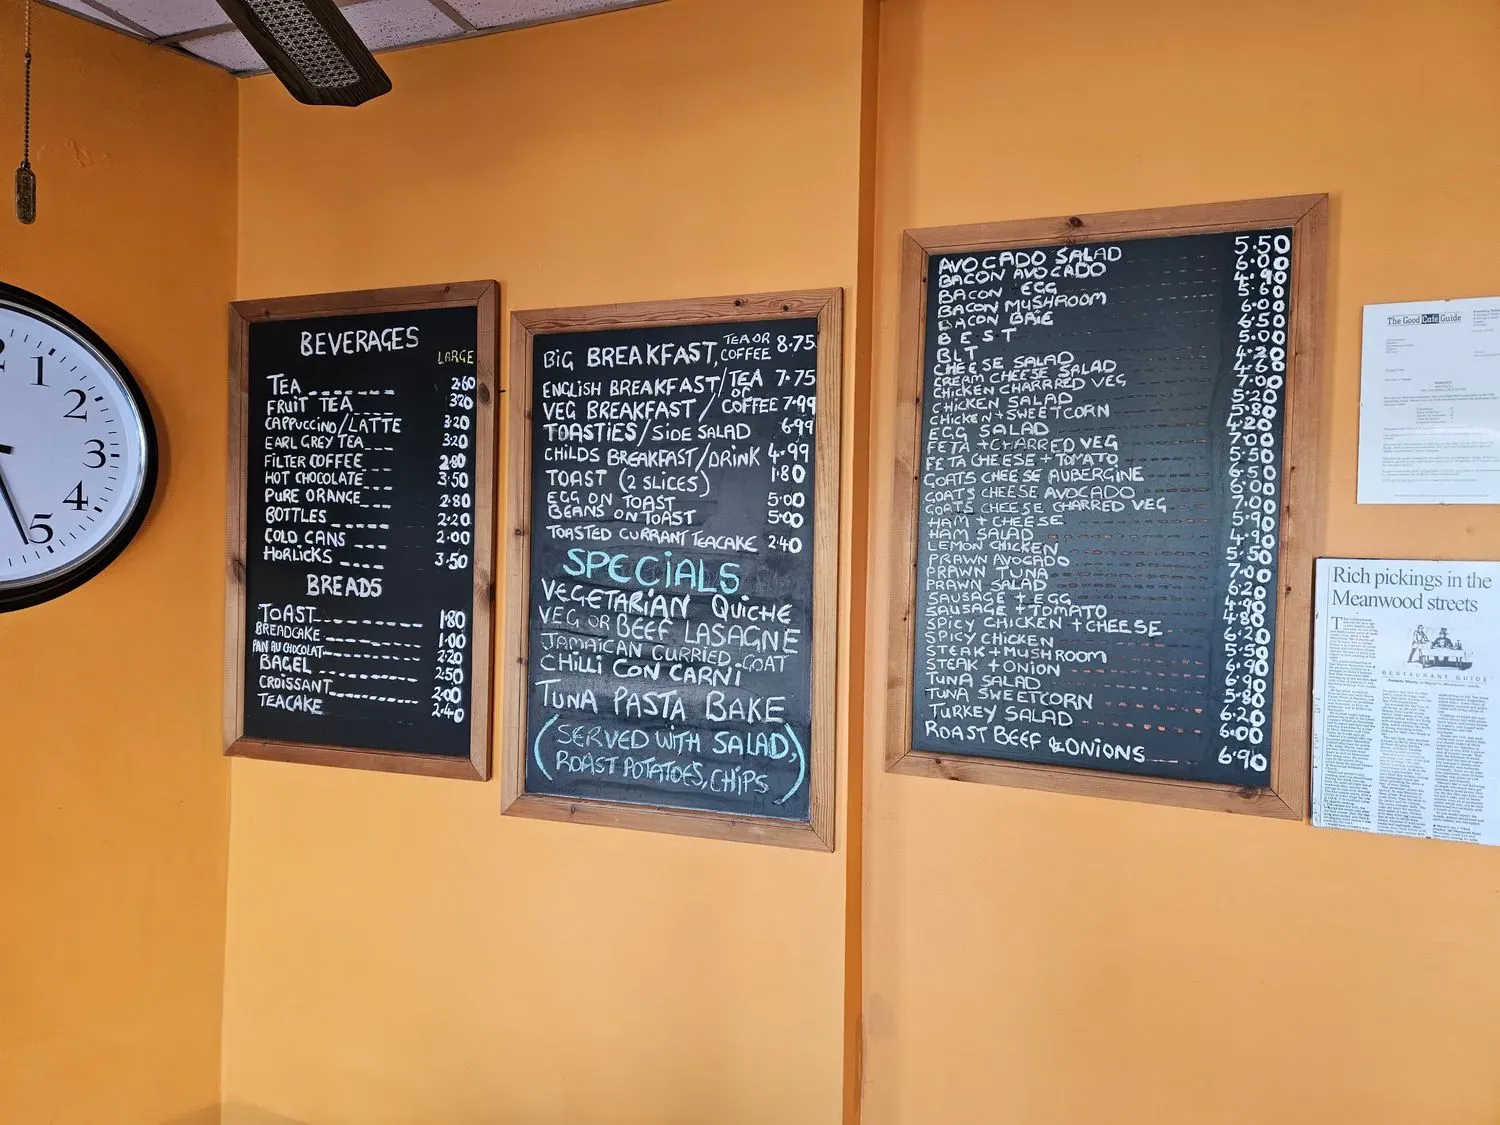 1
2
3
4
5
BEVERAGES
LARGE
TEA 2.60
FRUIT TEA 3.20
CAPPUCCINO/LATTE 3.20
EARL GREY TEA 3.20
FILTER COFFEE 2.80
HOT CHOCOLATE 3.50
PURE ORANGE 2.80
BOTTLES 2.20
COLD CANS 2.00
HORLICKS 3.50
BREADS
TOAST 1.80
BREADCAKE 1.00
PAIN AU CHOCOLAT 2.20
BAGEL 2.50
CROISSANT 2.00
TEACAKE 2.40
BIG BREAKFAST, TEA OR COFFEE 8.75
ENGLISH BREAKFAST/TEA 7.75
VEG BREAKFAST / OR COFFEE 7.99
TOASTIES/SIDE SALAD 6.99
CHILDS BREAKFAST/DRINK 4.99
TOAST (2 SLICES) 1.80
EGG ON TOAST 5.00
BEANS ON TOAST 5.00
TOASTED CURRANT TEACAKE 2.40
SPECIALS
VEGETARIAN QUICHE
VEG OR BEEF LASAGNE
JAMAICAN CURRIED GOAT
CHILLI CON CARNI
TUNA PASTA BAKE
(SERVED WITH SALAD,
ROAST POTATOES, CHIPS)
AVOCADO SALAD 5.50
BACON AVOCADO 6.00
BACON EGG 4.90
BACON MUSHROOM 5.60
BACON BRIE 6.00
B E S T 6.50
BLT 5.00
CHEESE SALAD 4.20
CREAM CHEESE SALAD 4.60
CHICKEN CHARRRED VEG 7.00
CHICKEN SALAD 5.20
CHICKEN + SWEETCORN 5.80
EGG SALAD 4.20
FETA + CHARRED VEG 7.00
FETA CHEESE + TOMATO 5.50
GOATS CHEESE AUBERGINE 6.50
GOATS CHEESE AVOCADO 6.00
GOATS CHEESE CHARRED VEG 7.00
HAM + CHEESE 5.90
HAM SALAD 4.90
LEMON CHICKEN 5.50
PRAWN AVOCADO 7.00
PRAWN TUNA 7.00
PRAWN SALAD 6.20
SAUSAGE + EGG 4.90
SAUSAGE + TOMATO 4.80
SPICY CHICKEN + CHEESE 6.20
SPICY CHICKEN 5.50
STEAK + MUSHROOM 6.90
STEAK + ONION 6.90
TUNA SALAD 5.80
TUNA SWEETCORN 6.20
TURKEY SALAD 6.00
ROAST BEEF & ONIONS 6.90
The Good Café Guide
Rich pickings in the
Meanwood streets
RESTAURANT GUIDE